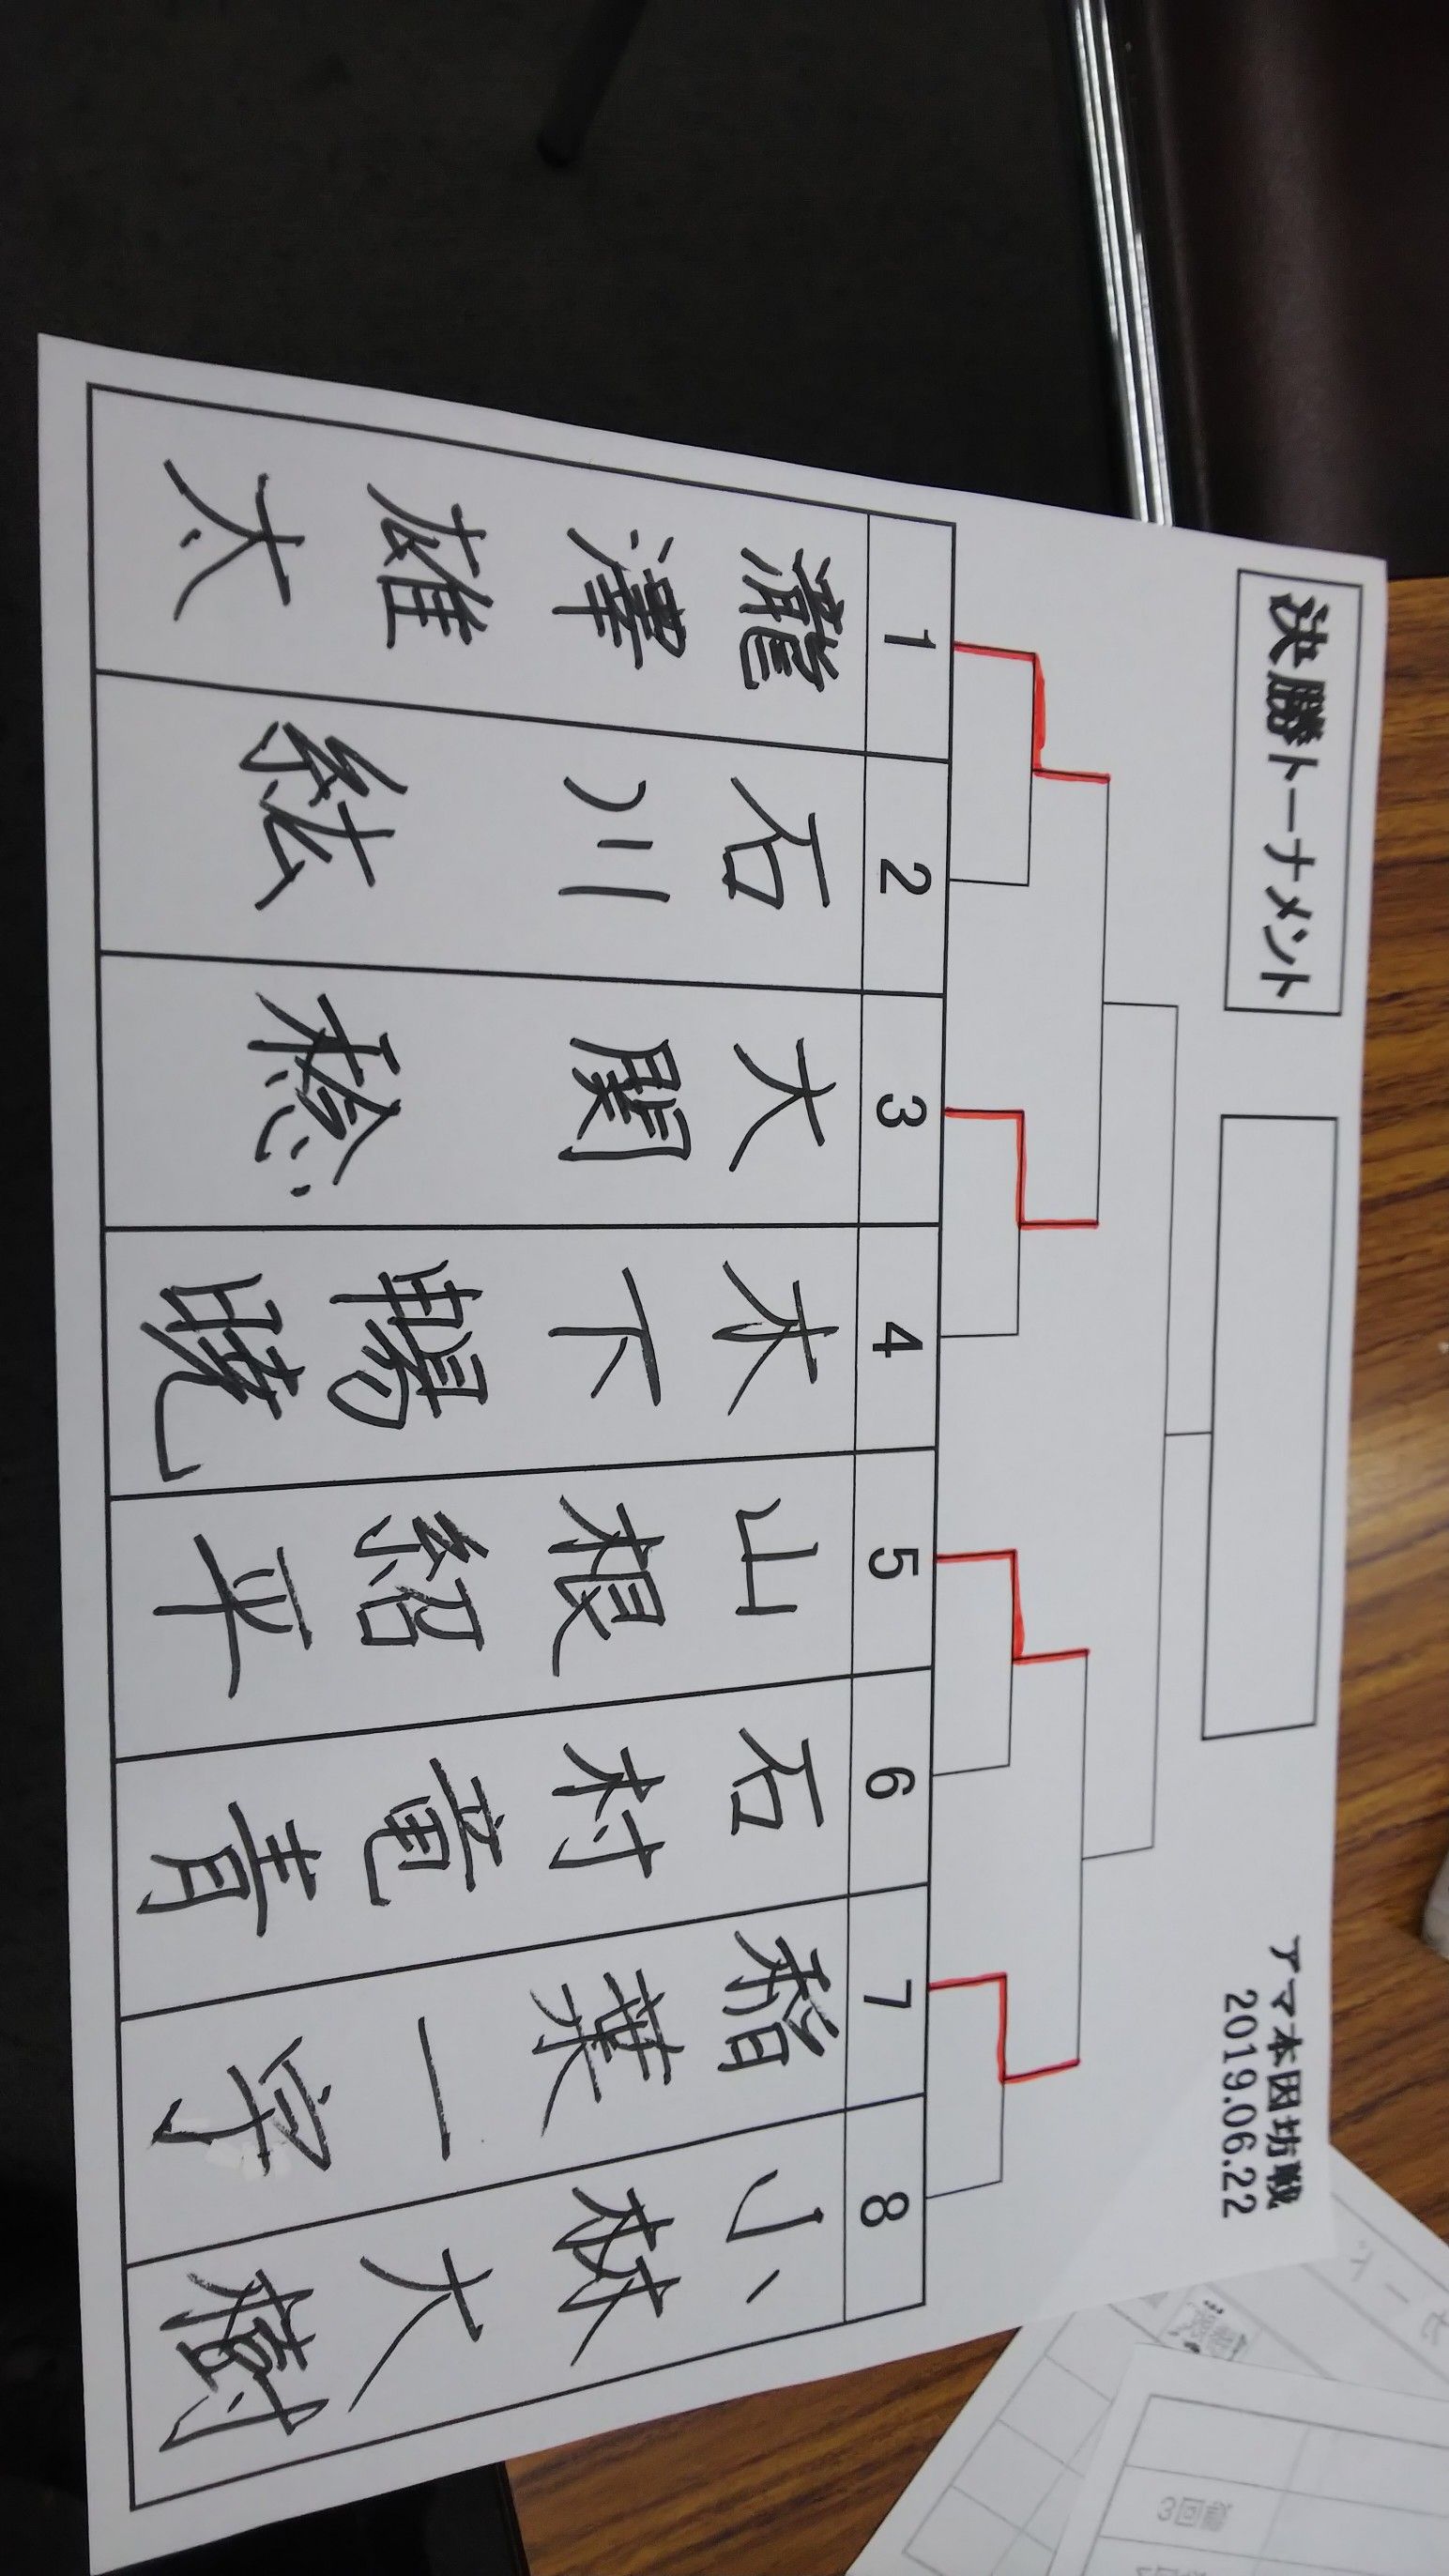 決勝トーナメント
アマ本因坊戦
2019.06.22
1
2
3
4
5
6
7
8
瀧澤雄太
石川紘
大関稔
木下暢暁
山根紹平
石村竜青
稲葉一宇
小林大樹
3回戦